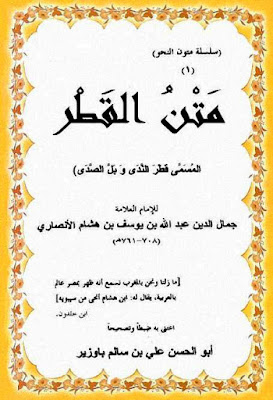 (سلسلة متون النحو)
(١)
مَتْنُ القَطْر
المُسَمَّى قَطْرَ النَّدَى وَ بَلَّ الصَّدَى)
للإمام العلامة
جمال الدين عبد الله بن يوسف بن هشام الأنصاري
(٧٠٨-٧٦١هـ)
[ما زلنا ونحن بالمغرب نسمع أنه ظهر بمصر عالم
بالعربية، يقال له: ابن هشام أنحى من سيبويه]
ابن خلدون.
اعتنى به ضبطاً وتصحيحاً
أبو الحسن علي بن سالم باوزير